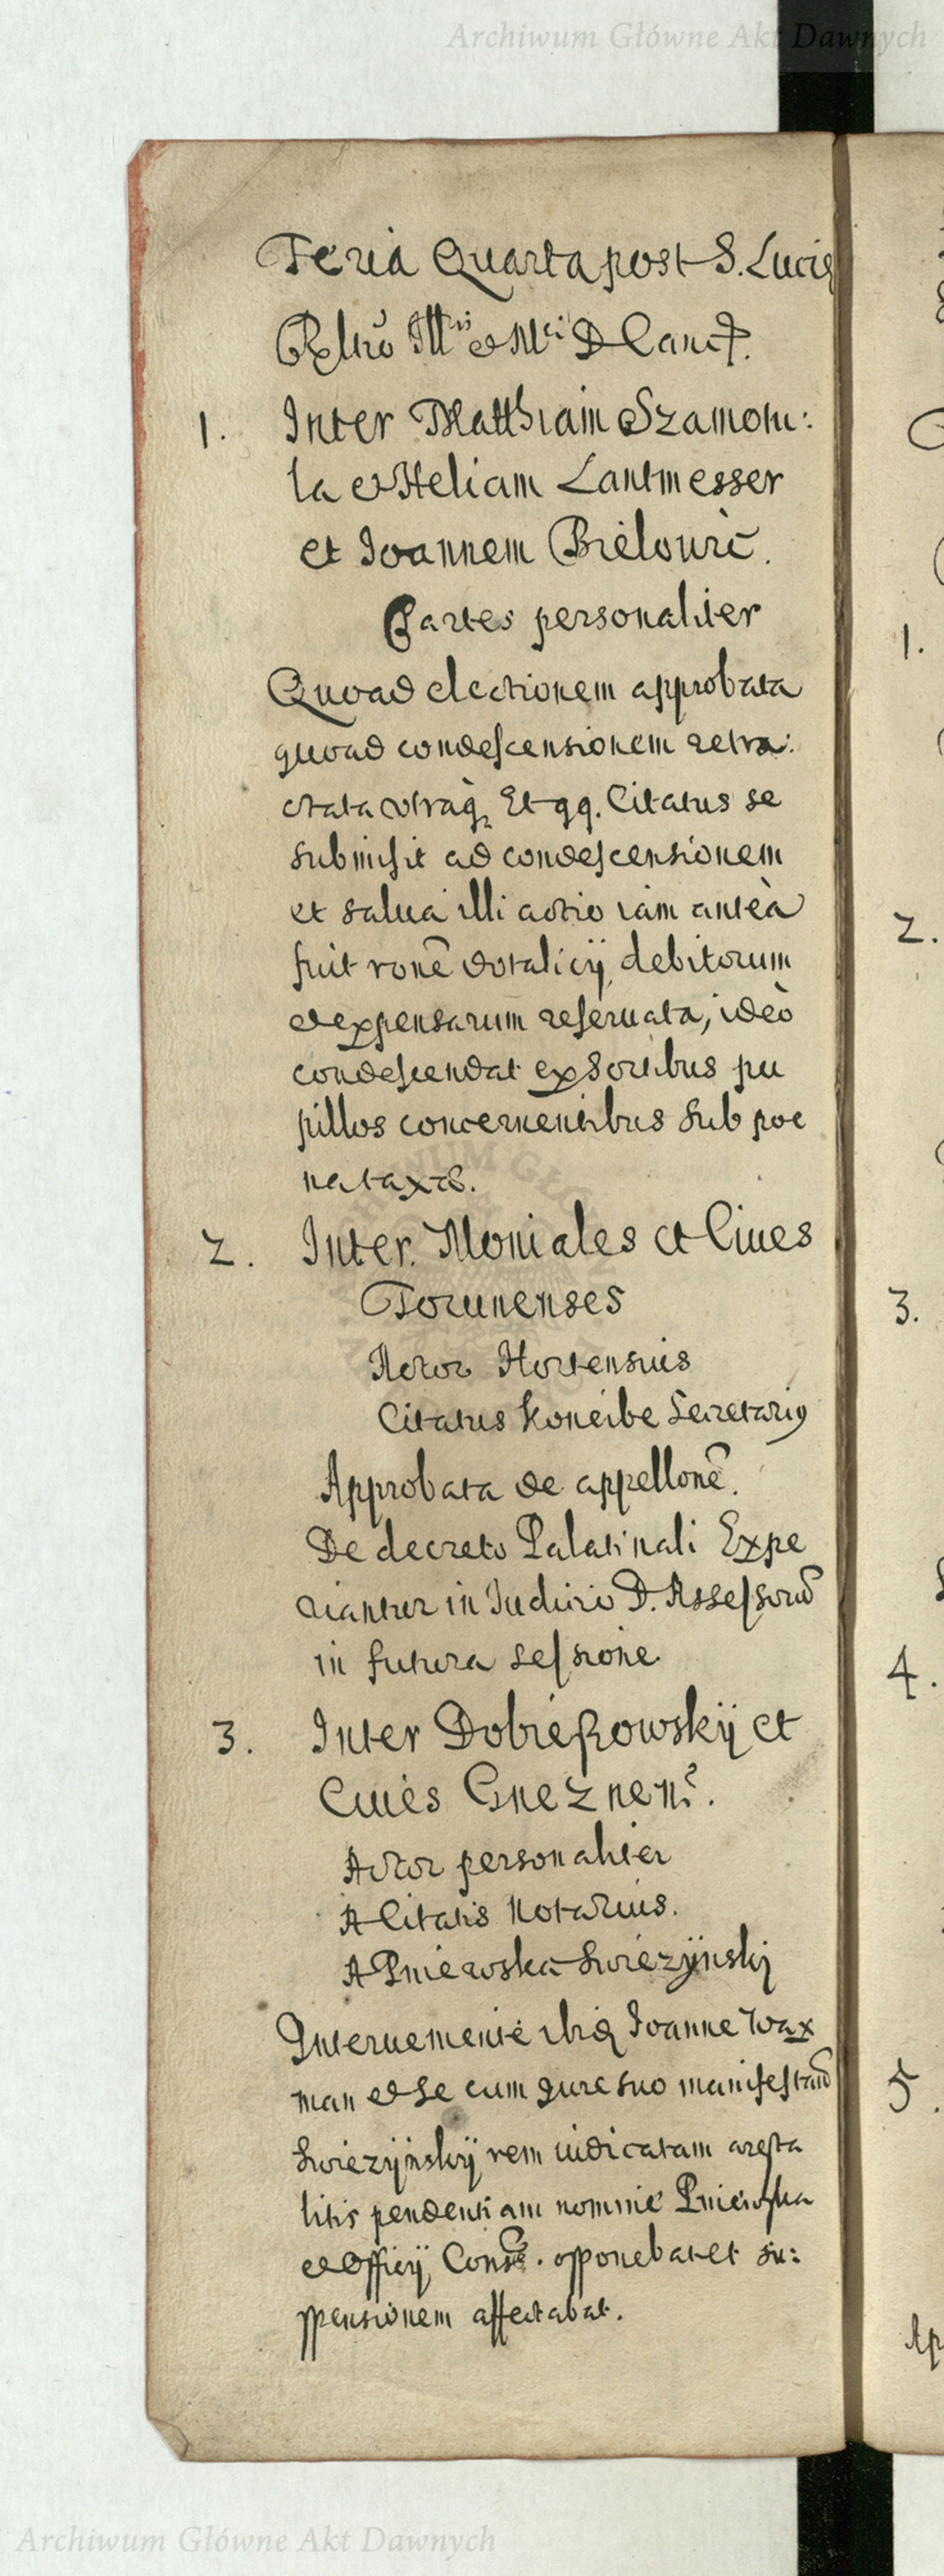 Archiwum Główne Akt Dawnych
Feria Quarta post S. Luciæ
Rltio Illris et Mci D Canc.
1. Inter Matthiam Szamotu:
la et Heliam Lantmesser
et Ioannem Bielouic.
Partes personaliter
Quoad electionem approbata
quoad condescensionem retra:
ctata vtraq; Et qq. Citatus se
submisit ad condescensionem
et salua illi actio iam anteà
fuit ronē dotalicÿ, debitorum
et expensarum reseruata, ideò
condescendat ex sortibus pu
pillos concernentibus sub poe
na taxæ.
2. Inter. Moniales et Ciues
Torunenses
Actor Hortensius
Citatus Koneibe Secretarius
Approbata de appellonē.
De decreto Palatinali Expe
riantur in Iudicio D. Assessorū
in futura sessione
3. Inter Dobrepowskÿ et
Ciues Gneznen.
Actor personaliter
A Citatis Notarius.
A Pniewska Swiezÿnskj
Interuemente ibiq Ioanne Wax
man et se cum iure suo manifestan
Swiezÿnskÿ rem iudicatam aresta
litis pendentiam nomine Pniewska
et Officÿ Cons. opponebat et su:
spensionem affectabat.
1.
2.
3.
4.
5.
Ap
Archiwum Główne Akt Dawnych